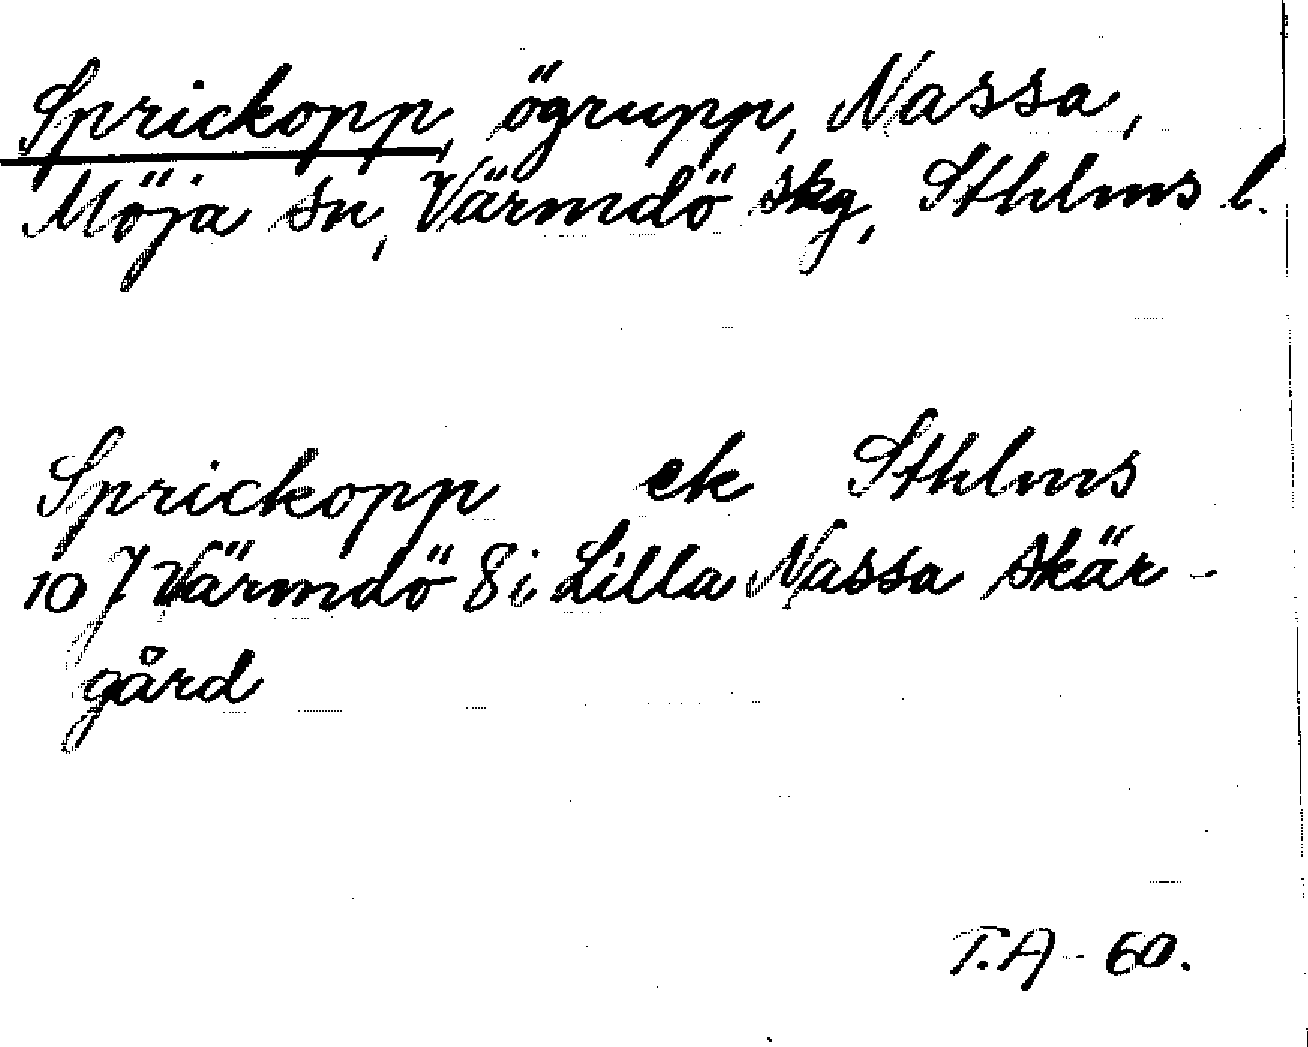 Sprickopp, ögrupp, Nassa,
Möja sn, Värmdö skg, Sthlms l.
Sprickopp ek Sthlms
10 J Värmdö 8 i Lilla Nassa skär-
gård
T.A - 60.